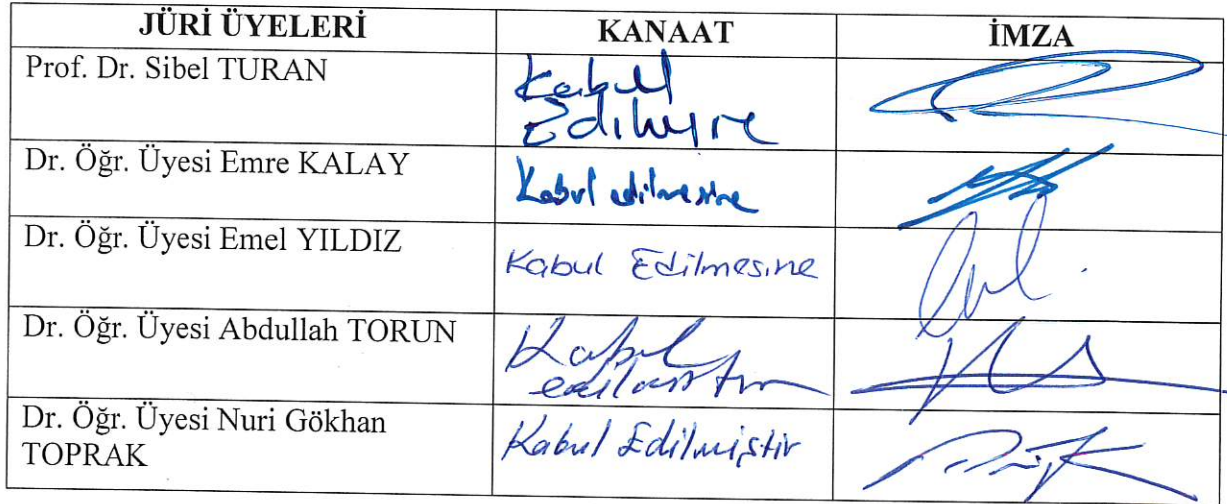 JÜRİ ÜYELERİ KANAAT İMZA
Prof. Dr. Sibel TURAN Kabul
Edilmesine
Dr. Öğr. Üyesi Emre KALAY Kabul edilmesine
Dr. Öğr. Üyesi Emel YILDIZ Kabul Edilmesine
Dr. Öğr. Üyesi Abdullah TORUN Kabul
edilmiştir
Dr. Öğr. Üyesi Nuri Gökhan
TOPRAK Kabul Edilmiştir